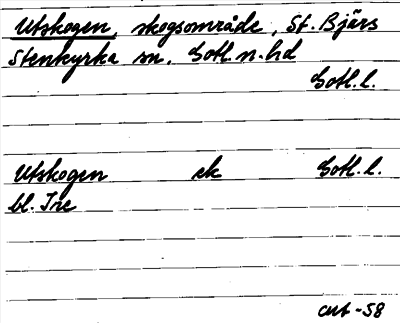 Utskogen, skogsområde, St. Bjärs
Stenkyrka sn. Gotl. n. hd
Gotl. l.
Utskogen ek Gotl. l.
bl. Tre